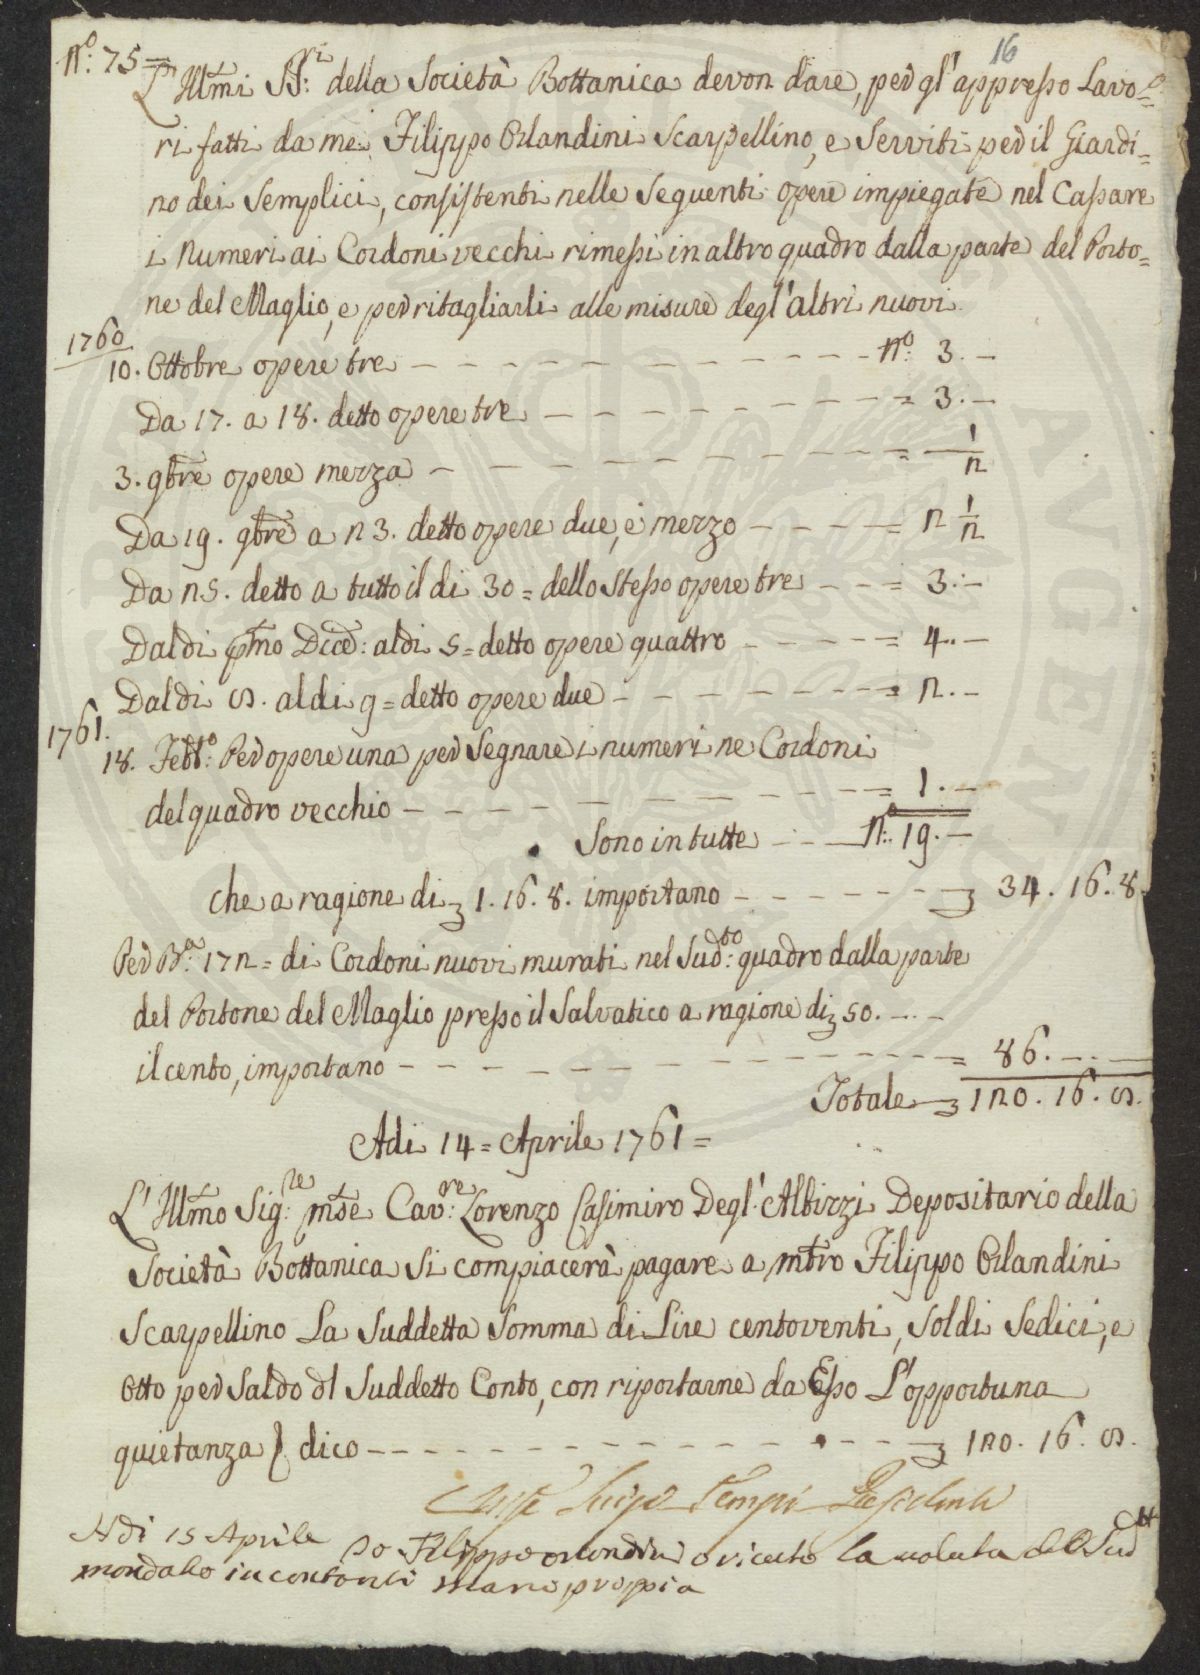 16
N.º 75 =
L'Illmi SS.ri della Società Bottanica devon dare, per gl'appresso Lavo=
ri fatti da me Filippo Orlandini Scarpellino, e Serviti per il Giardi=
no dei Semplici, consistenti nelle Seguenti opere impiegate nel Cassare
i Numeri ai Cordoni vecchi rimessi in altro quadro dalla parte del Porto=
ne del Maglio, e per ritagliarli alle misure degl'altri nuovi
1760
10. Ottobre opere tre — — — Nº 3. —
Da 17. a 18. detto opere tre — — — = 3. —
3. 9bre opere mezza — — — = — 1/2
Da 19. 9bre a 23. detto opere due, e mezzo — — — = 2 1/2
Da 25. detto a tutto il di 30 = dello Stesso opere tre — — = 3. —
Dal di pmo Dice: al di 5 = detto opere quattro — — — = 4. —
Dal di 8. al di 9 = detto opere due — — — = 2. —
1761.
18. Febb.º Per opere una per Segnare i numeri ne Cordoni
del quadro vecchio — — — = 1. —
Sono in tutte — — Nº 19. —
che a ragione di £ 1. 16. 8. importano — — — £ 34. 16. 8.
Per Bra. 172 = di Cordoni nuovi murati nel Sud.to quadro dalla parte
del Portone del Maglio presso il Salvatico a ragione di £ 50. — —
il cento, importano — — — = 86. — —
Totale — £ 120. 16. 8.
Adi 14 = Aprile 1761 =
L'Illmo Sig.re mse Cav.re Lorenzo Casimiro Degl'Albizzi Depositario della
Società Bottanica Si compiacerà pagare a mtro Filippo Orlandini
Scarpellino La Suddetta Somma di Lire centoventi, Soldi Sedici, e
Otto per Saldo dl Suddetto Conto, con riportarne da Esso L'opportuna
quietanza dico — — — £ 120. 16. 8.
Luigi Tempi Presidente
Adi 15 Aprile Io Filippo orlandini o riceuto la ualuta del Sud
mandato in contanti mano propia